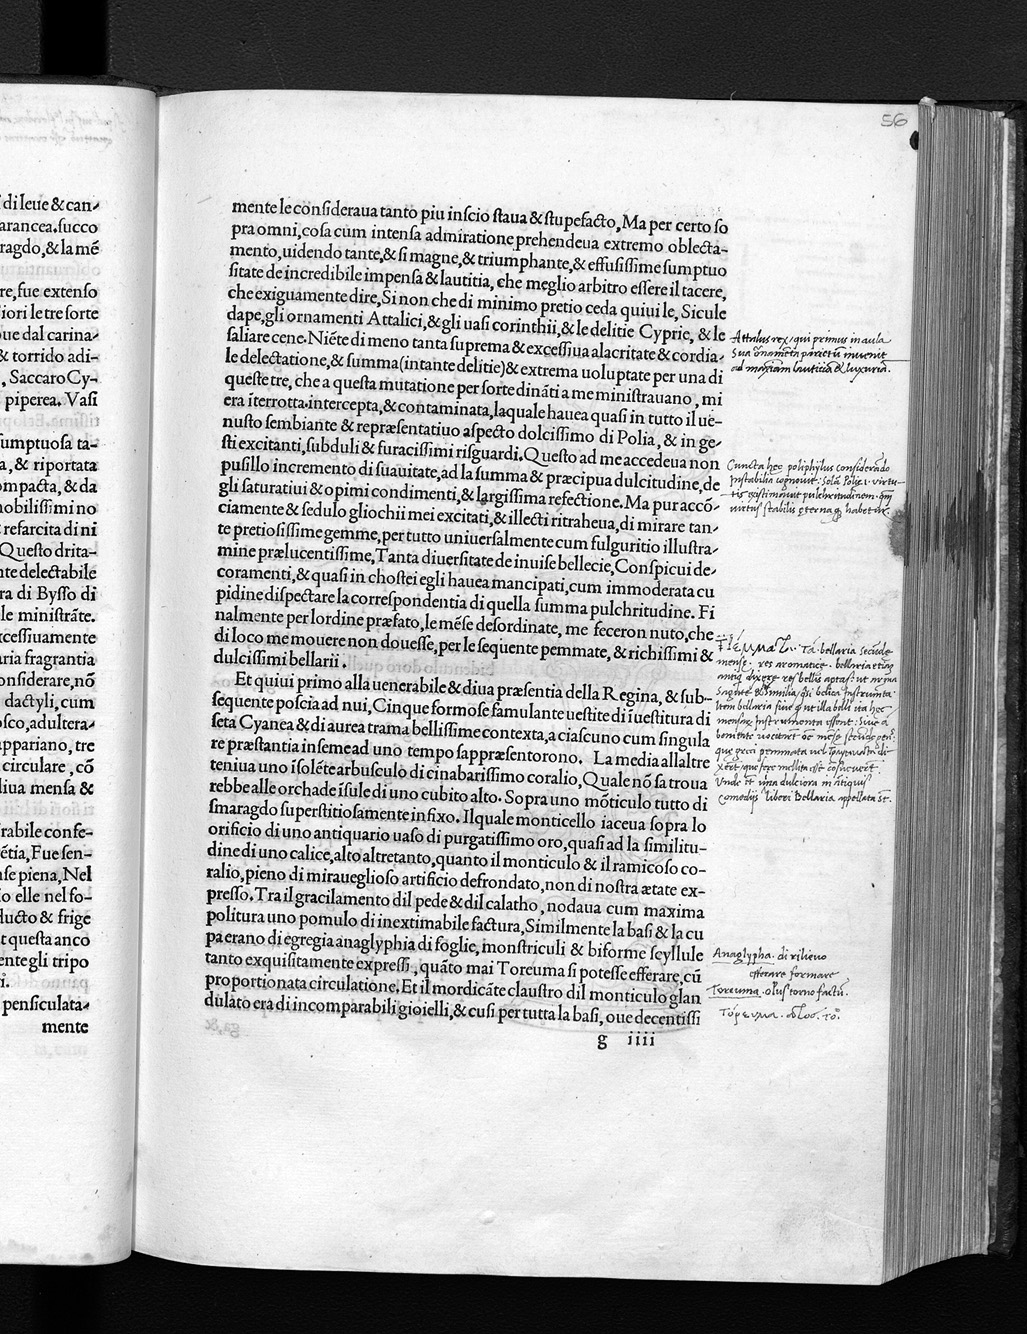 di leue & can-
arancea. succo
ragdo, & la mē
re, fue extenso
iori le tre sorte
oue dal carina-
& torrido adi-
, Saccaro Cy-
piperea. Vasi
sumptuosa ta-
a, & riportata
ompacta, & da
nobilissimi no
refarcita di ni
Questo drita-
nte delectabile
ra di Bysso di
le ministrāte.
xcessiuamente
aria fragrantia
onsiderare, nō
dactyli, cum
osco, adultera-
appariano, tre
circulare, cō
liua mensa &
rabile confe-
ētia, Fue sen-
nse piena, Nel
io elle nel fo-
ducto & frige
t questa anco
ente gli tripo
i.
pensiculata-
mente
56
mente le consideraua tanto piu inscio staua & stupefacto, Ma per certo so
pra omni, cosa cum intensa admiratione prehendeua extremo oblecta-
mento, uidendo tante, & si magne, & triumphante, & effusissime sumptuo
sitate de incredibile impensa & lautitia, che meglio arbitro essere il tacere,
che exiguamente dire, Si non che di minimo pretio ceda quiui le, Sicule
dape, gli ornamenti Attalici, & gli uasi corinthii, & le delitie Cyprie, & le
saliare cene. Niēte di meno tanta suprema & excessiua alacritate & cordia-
le delectatione, & summa (in tante delitie) & extrema uoluptate per una di
queste tre, che a questa mutatione per sorte dināti a me ministrauano, mi
era iterrotta. intercepta, & contaminata, laquale hauea quasi in tutto il ue-
nusto sembiante & repræsentatiuo aspecto dolcissimo di Polia, & in ge-
sti excitanti, subduli & furacissimi risguardi. Questo ad me accedeua non
pusillo incremento di suauitate, ad la summa & præcipua dulcitudine, de
gli saturatiui & opimi condimenti, & largissima refectione. Ma pur accō-
ciamente & sedulo gliochii mei excitati, & illecti ritraheua, di mirare tan-
te pretiosissime gemme, per tutto uniuersalmente cum fulguritio illustra-
mine prælucentissime, Tanta diuersitate de inuise bellecie, Conspicui de-
coramenti, & quasi in chostei egli hauea mancipati, cum immoderata cu
pidine dispectare la correspondentia di quella summa pulchritudine. Fi
nalmente per lordine præfato, le mēse desordinate, me feceron nuto, che
di loco me mouere non douesse, per le sequente pemmate, & richissimi &
dulcissimi bellarii.
Et quiui primo alla uenerabile & diua præsentia della Regina, & sub-
sequente poscia ad nui, Cinque formose famulante uestite di iuestitura di
seta Cyanea & di aurea trama bellissime contexta, a ciascuno cum singula
re præstantia insemead uno tempo sappræsentorono. La media allaltre
teniua uno isolēte arbusculo di cinabarissimo coralio, Quale nō sa troua
rebbe alle orchade isule di uno cubito alto. Sopra uno mōticulo tutto di
smaragdo superstitiosamente infixo. Ilquale monticello iaceua sopra lo
orificio di uno antiquario uaso di purgatissimo oro, quasi ad la similitu-
dine di uno calice, alto altretanto, quanto il monticulo & il ramicoso co-
ralio, pieno di miraueglioso artificio defrondato, non di nostra ætate ex-
presso. Tra il gracilamento dil pede & dil calatho, nodaua cum maxima
politura uno pomulo di inextimabile factura, Similmente la basi & la cu
pa erano di egregia anaglyphia di foglie, monstriculi & biforme scyllule
tanto exquisitamente expressi, quāto mai Toreuma si potesse efferare, cū
proportionata circulatione. Et il mordicāte claustro dil monticulo glan
dulato era di incomparabili gioielli, & cusi per tutta la basi, oue decentissi
g iiii
Attalus rex, qui primus in aula
sua ornamēta parietū inuenit
ad maximam lautitiā & luxuriā.
Cuncta hęc poliphylus considerādo
instabilia cognouit. Solā Polię. i. virtu-
tis existimauit pulchritudinem.
virtus stabilis ęterna habetur.
bellaria secūdę
mensę. res aromaticę. bellaria etiam
Anaglypha. di rilieuo
efferare formare
Toreuma. torno factū.